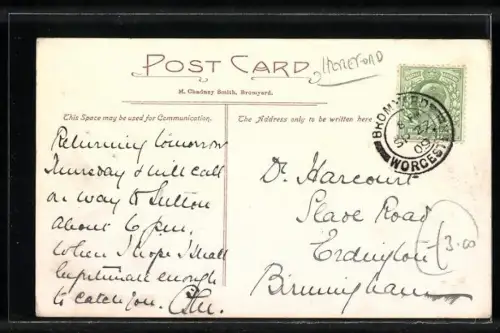 POST CARD
HEREFORD
M. Chadney Smith, Bromyard.
This Space may be used for Communication.
The Address only to be written here
BROMYARD
WORCESTER
Returning tomorrow
Thursday & will call
on way to Sutton
about 6 p.m.
When I hope I shall
be fortunate enough
to catch you.
Dr. Harcourt
Slade Road
Erdington
Birmingham
£3.00